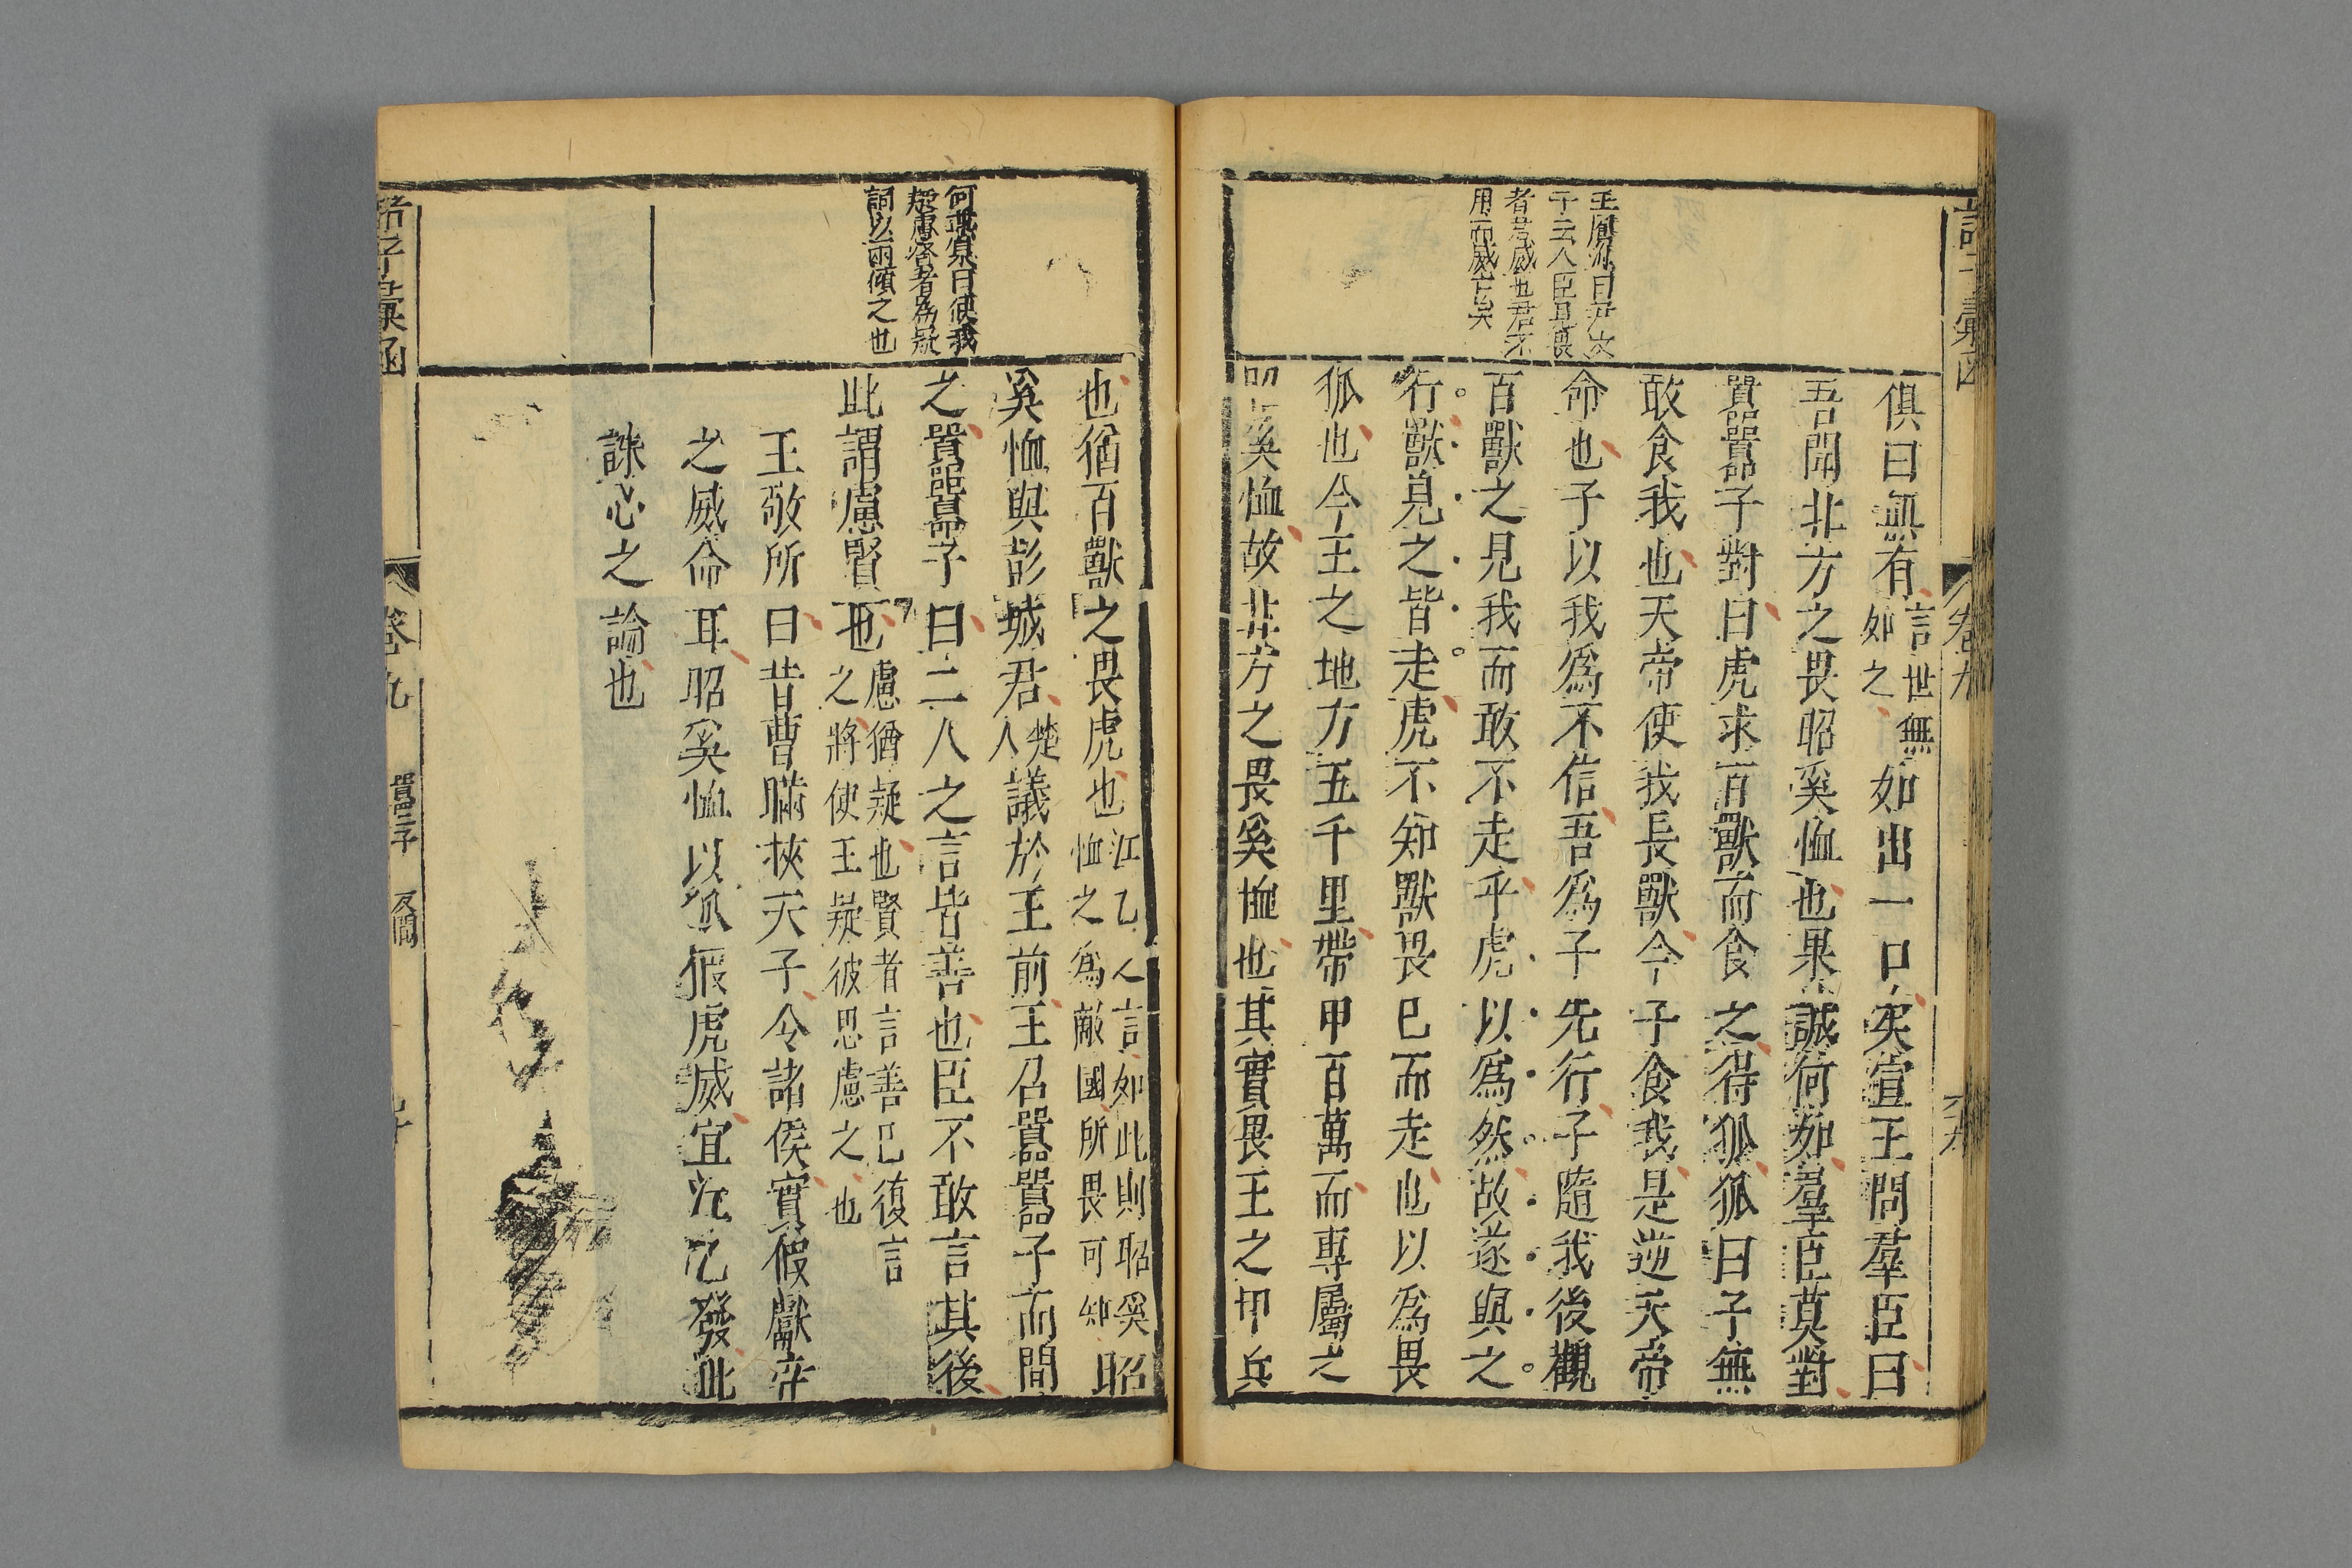 王鳳洲曰尹文
子云人臣見畏
者君威也君不
用而威亡矣
俱曰無有言世無如之如出一口矣宣王問羣臣曰
吾聞北方之畏昭奚恤也果誠何如羣臣莫對
囂囂子對曰虎求百獸而食之得狐狐曰子無
敢食我也天帝使我長獸今子食我是逆天帝
命也子以我爲不信吾爲子先行子隨我後觀
百獸之見我而敢不走乎虎以爲然故遂與之
行獸見之皆走虎不知獸畏巳而走也以爲畏
狐也今王之地方五千里帶甲百萬而專屬之
昭奚恤故北方之畏奚恤也其實畏王之甲兵
何燕泉曰使我
疑慮容者爲疑
詞以兩傾之也
也猶百獸之畏虎也江乙人言如此則昭奚恤之爲敵國所畏可知昭
奚恤與彭城君楚人議於王前王召囂囂子而問
之囂囂子曰二人之言皆善也臣不敢言其後
此謂慮賢也慮猶疑也賢者言善巳復言之將使王疑彼思慮之也
王敬所曰昔曹瞞挾天子令諸侯實假獻帝
之威命耳昭奚恤以狐假虎威宜江乙發此
誅心之論也
諸子彙函
卷九
囂囂子
反間